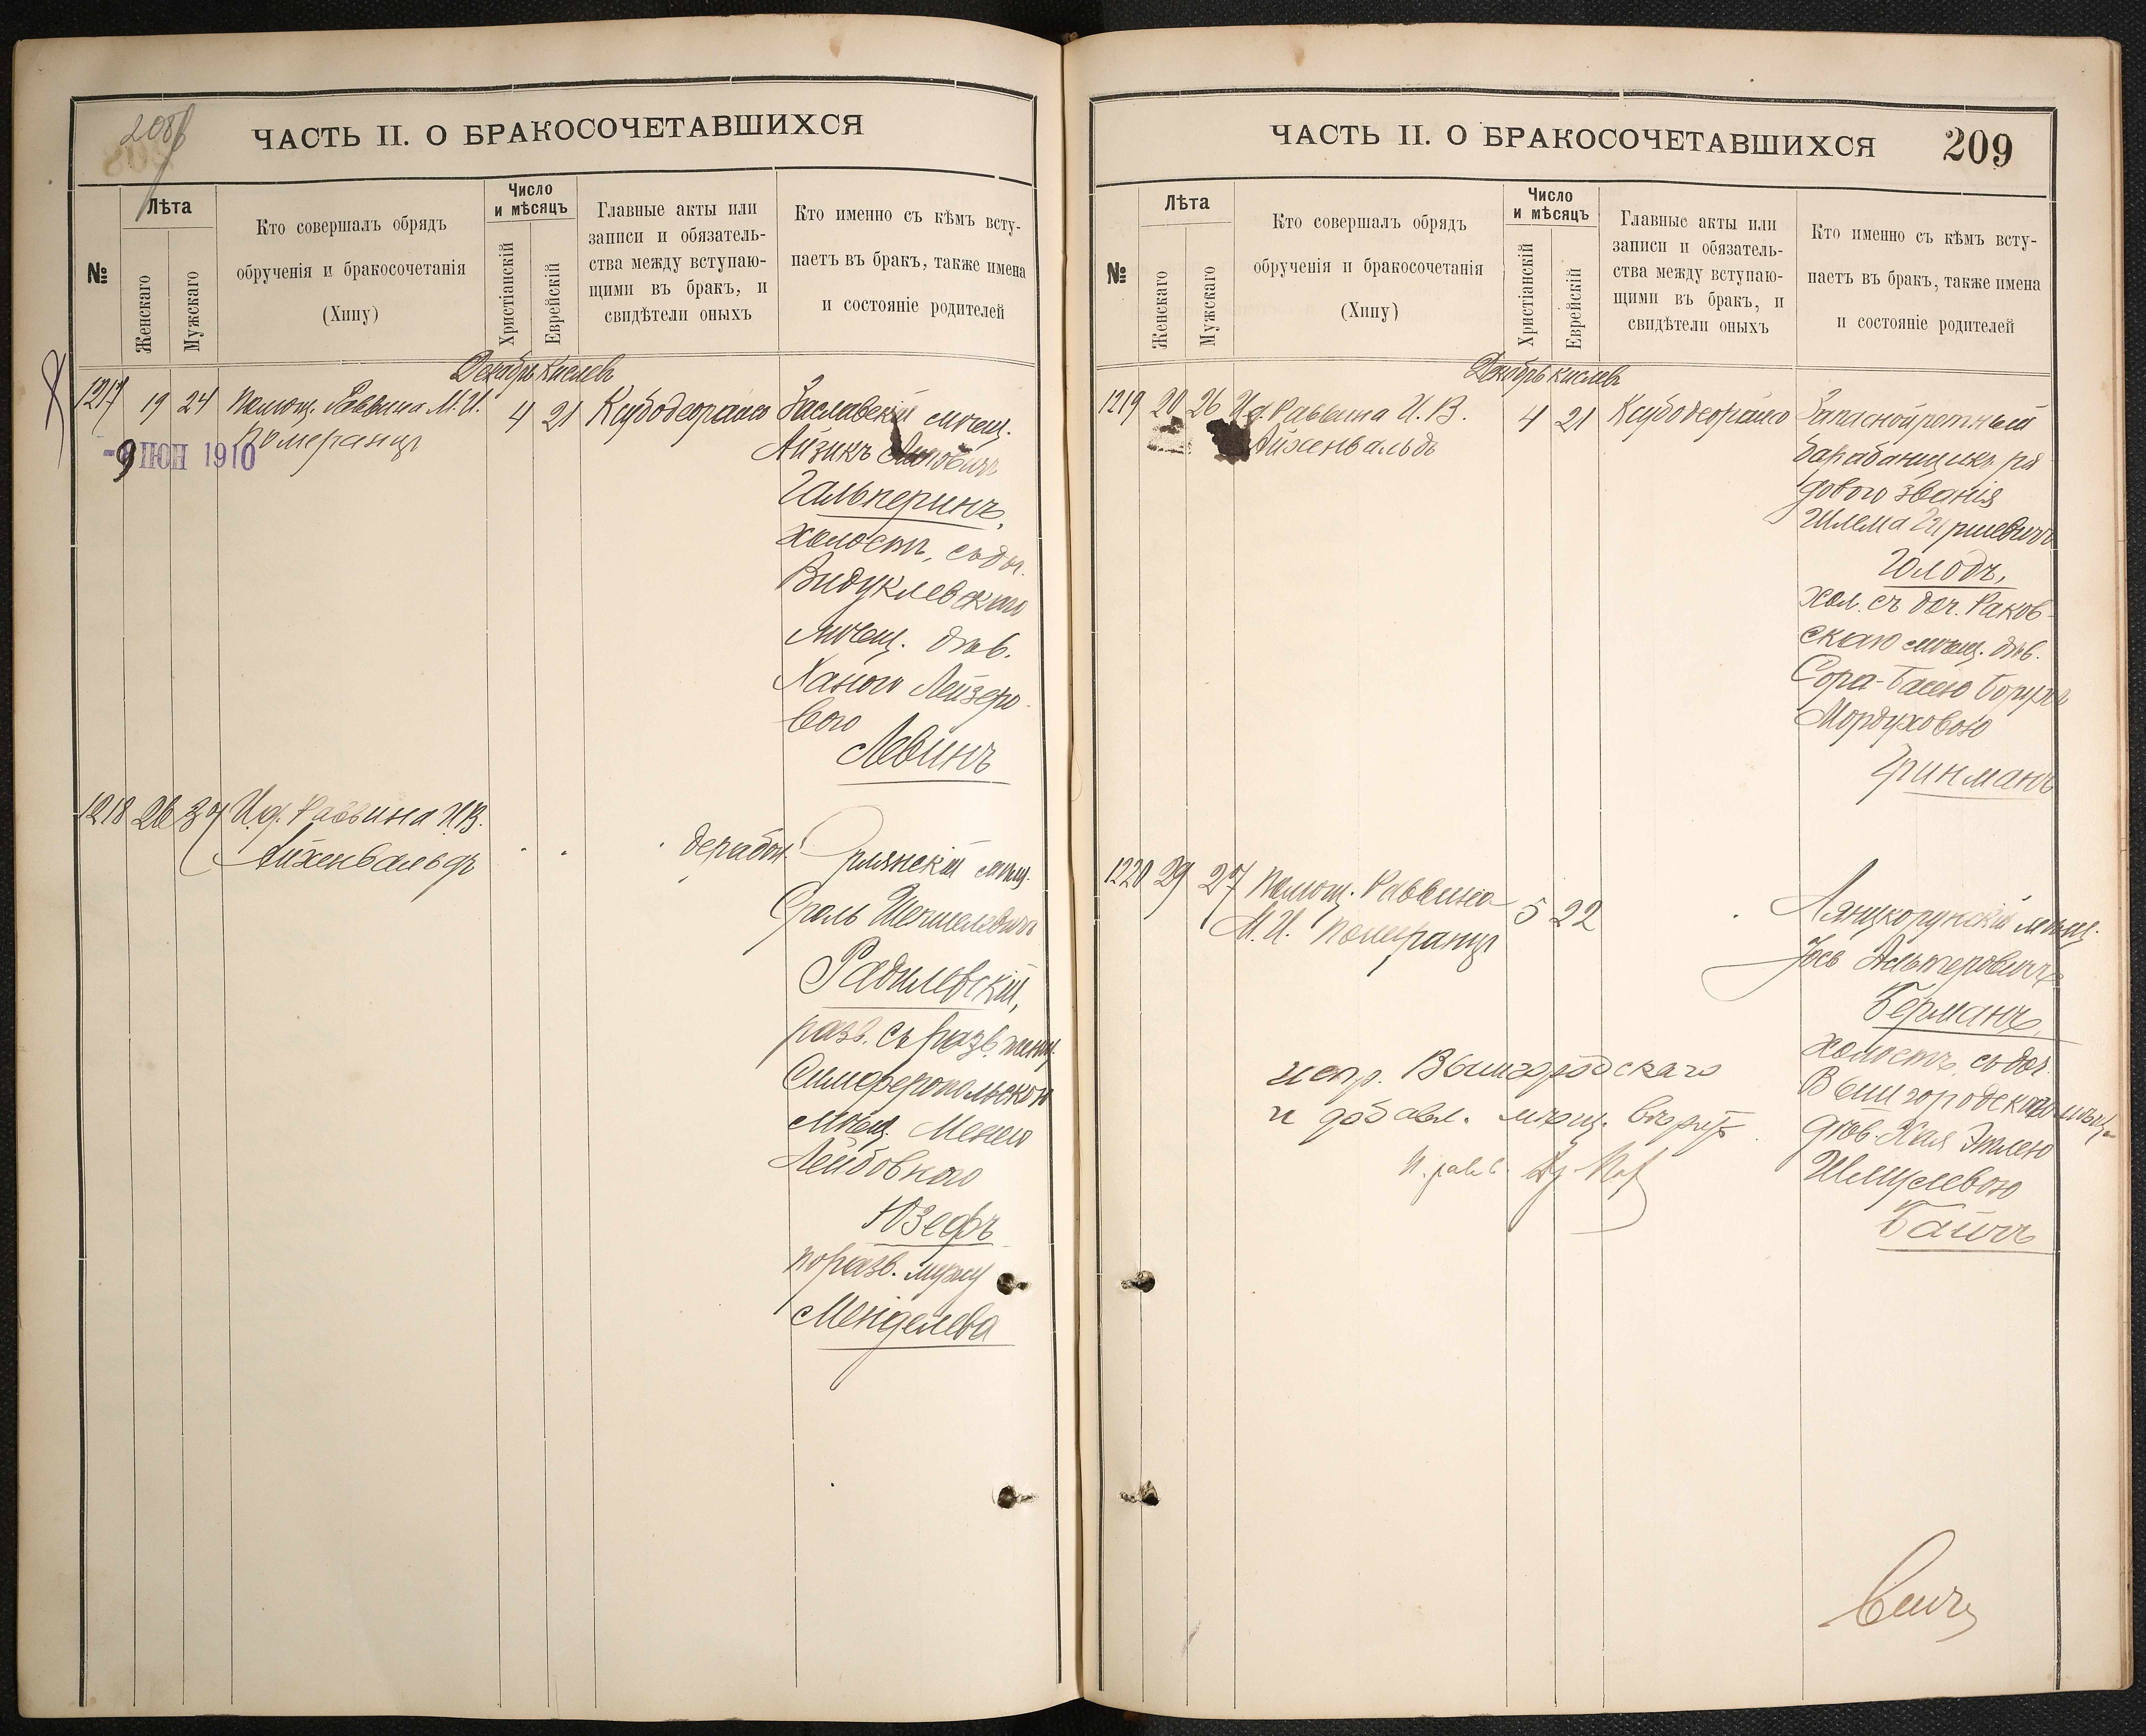 208
ЧАСТЬ II. О БРАКОСОЧЕТАВШИХСЯ
№
Лѣта
Женскаго
Мужскаго
Кто совершалъ обрядъ
обрученія и бракосочетанія
(Хипу)
Число
и мѣсяцъ
Христіанскій
Еврейскій
Главные акты или
записи и обязатель-
ства между вступаю-
щими въ бракъ, и
свидѣтели оныхъ
Кто именно съ кѣмъ всту-
паетъ въ бракъ, также имена
и состояніе родителей
Декабрь Кислевъ
1217 19 24 Помощ. Раввина М. И.
Померанцъ
4 21
9 ИЮН 1910
Заславскій мѣщ.
Айзикъ
Гальперинъ,
холостъ, съ доч.
Видуклевскаго
мѣщ. дѣв.
Ханою Лейзеро-
вою
Левинъ
1218 26 37 И. д. Раввина И. В.
Айхенвальдъ
" " "
мѣщ.
Сроль Шепшелевичъ
Радилевскій,
разв. съ разв. женщ.
Симферопольскою
мѣщ. Менею
Лейбовною
Юзефъ
по разв. мужу
Менделева
ЧАСТЬ II. О БРАКОСОЧЕТАВШИХСЯ
209
№
Лѣта
Женскаго
Мужскаго
Кто совершалъ обрядъ
обрученія и бракосочетанія
(Хипу)
Число
и мѣсяцъ
Христіанскій
Еврейскій
Главные акты или
записи и обязатель-
ства между вступаю-
щими въ бракъ, и
свидѣтели оныхъ
Кто именно съ кѣмъ всту-
паетъ въ бракъ, также имена
и состояніе родителей
Декабрь Кислевъ
1219 20 26 И. д. Раввина И. В.
Айхенвальдъ
4 21
Запасной ротный
барабанщикъ ря-
дового званія
Шлема Гершевичъ
Голодъ,
хол. съ доч. Раков-
скаго мѣщ. дѣв.
Сора-Басею Борухъ
Мордуховою
Гринманъ
1220 29 27 Помощ. Раввина
М. И. Померанцъ
5 22
"
Лянцкорунскій мѣщ.
Іось Альтеровичъ
Берманъ,
холостъ, съ доч.
Вышгородскаго мѣщ.
дѣв. Хая Этлею
Шмулевою
Байчъ
испр. Вышгородскаго
и добавл. мѣщ. вѣрить